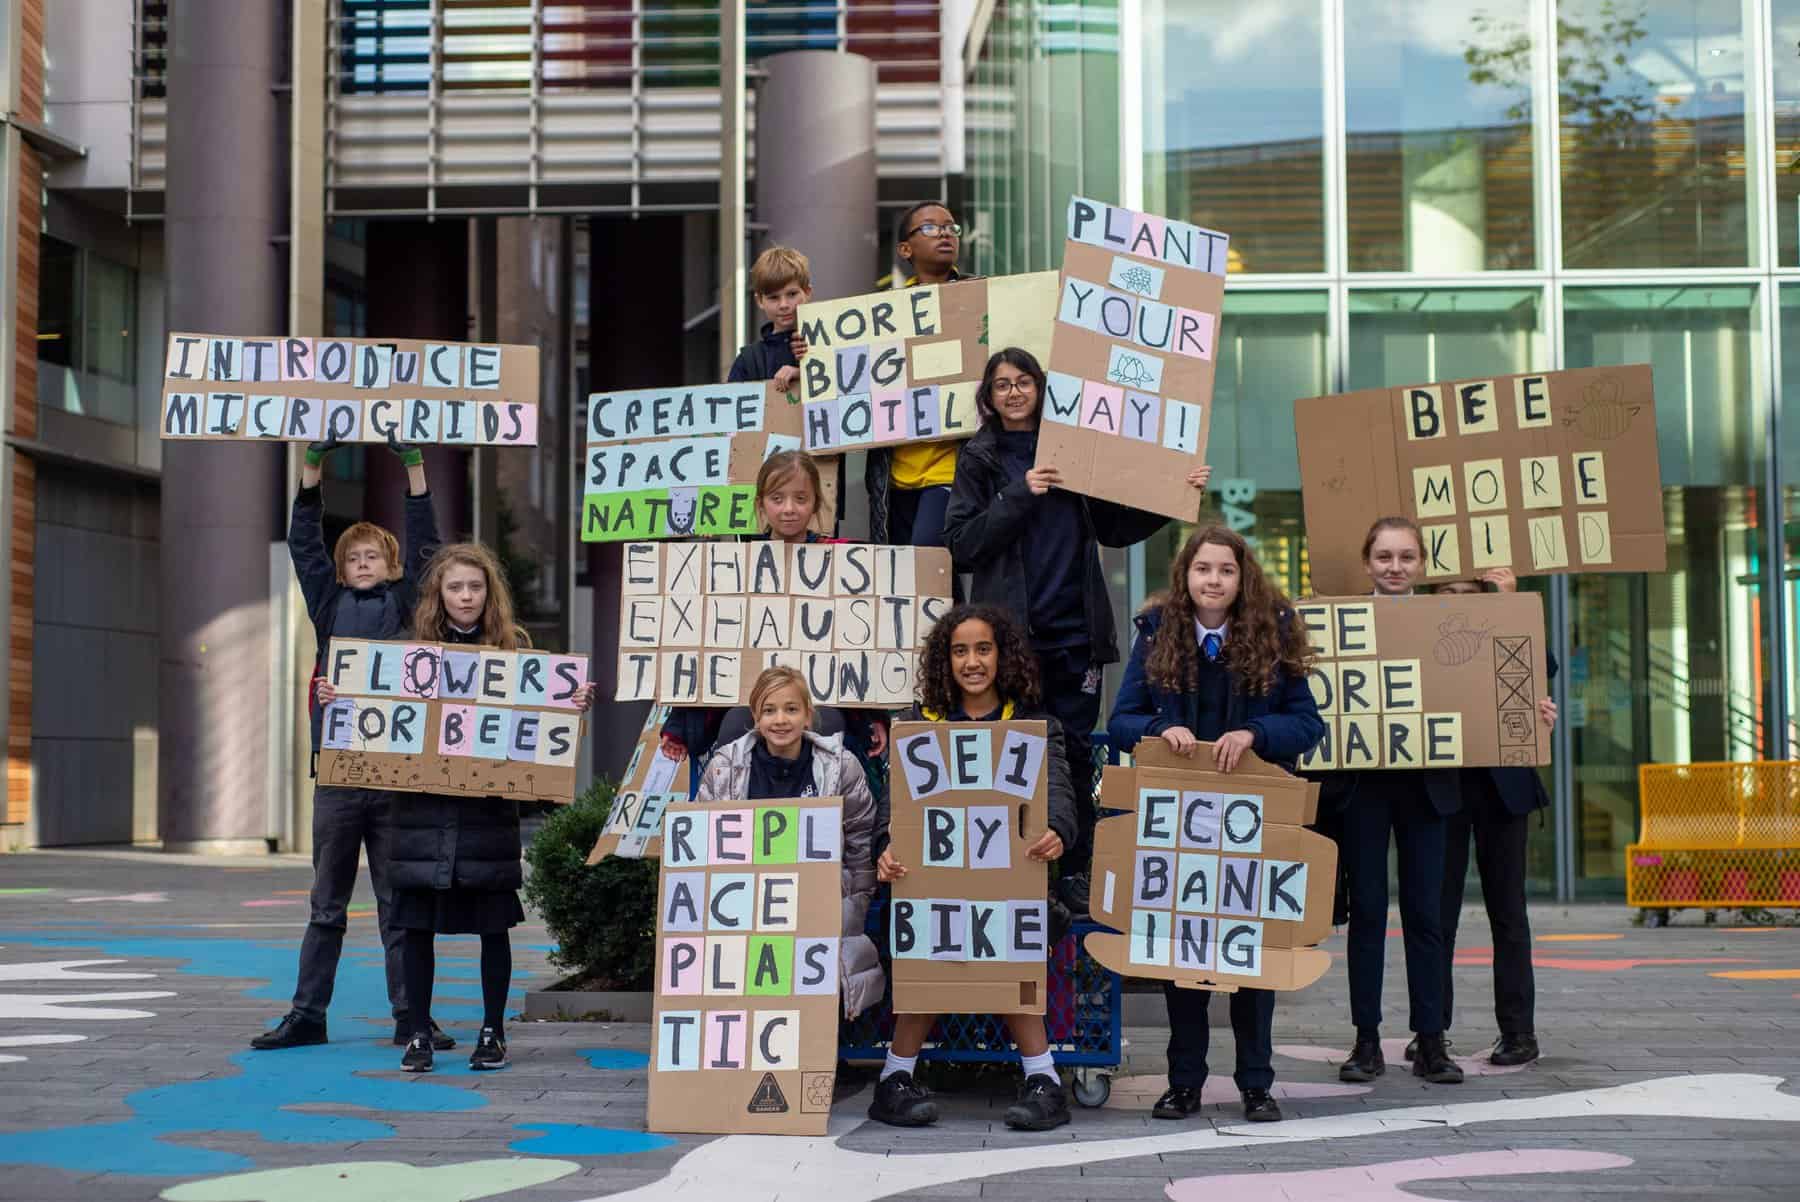 PLANT
YOUR
WAY!
MORE
BUG
HOTEL
INTRODUCE
MICROGRIDS
CREATE
SPACE
NATURE
BEE
MORE
KIND
EXHAUST
EXHAUSTS
THE LUNG
FLOWERS
FOR BEES
EE
ORE
WARE
BA
BREA
REPL
ACE
PLAS
TIC
DANGER
SE1
BY
BIKE
ECO
BANK
ING